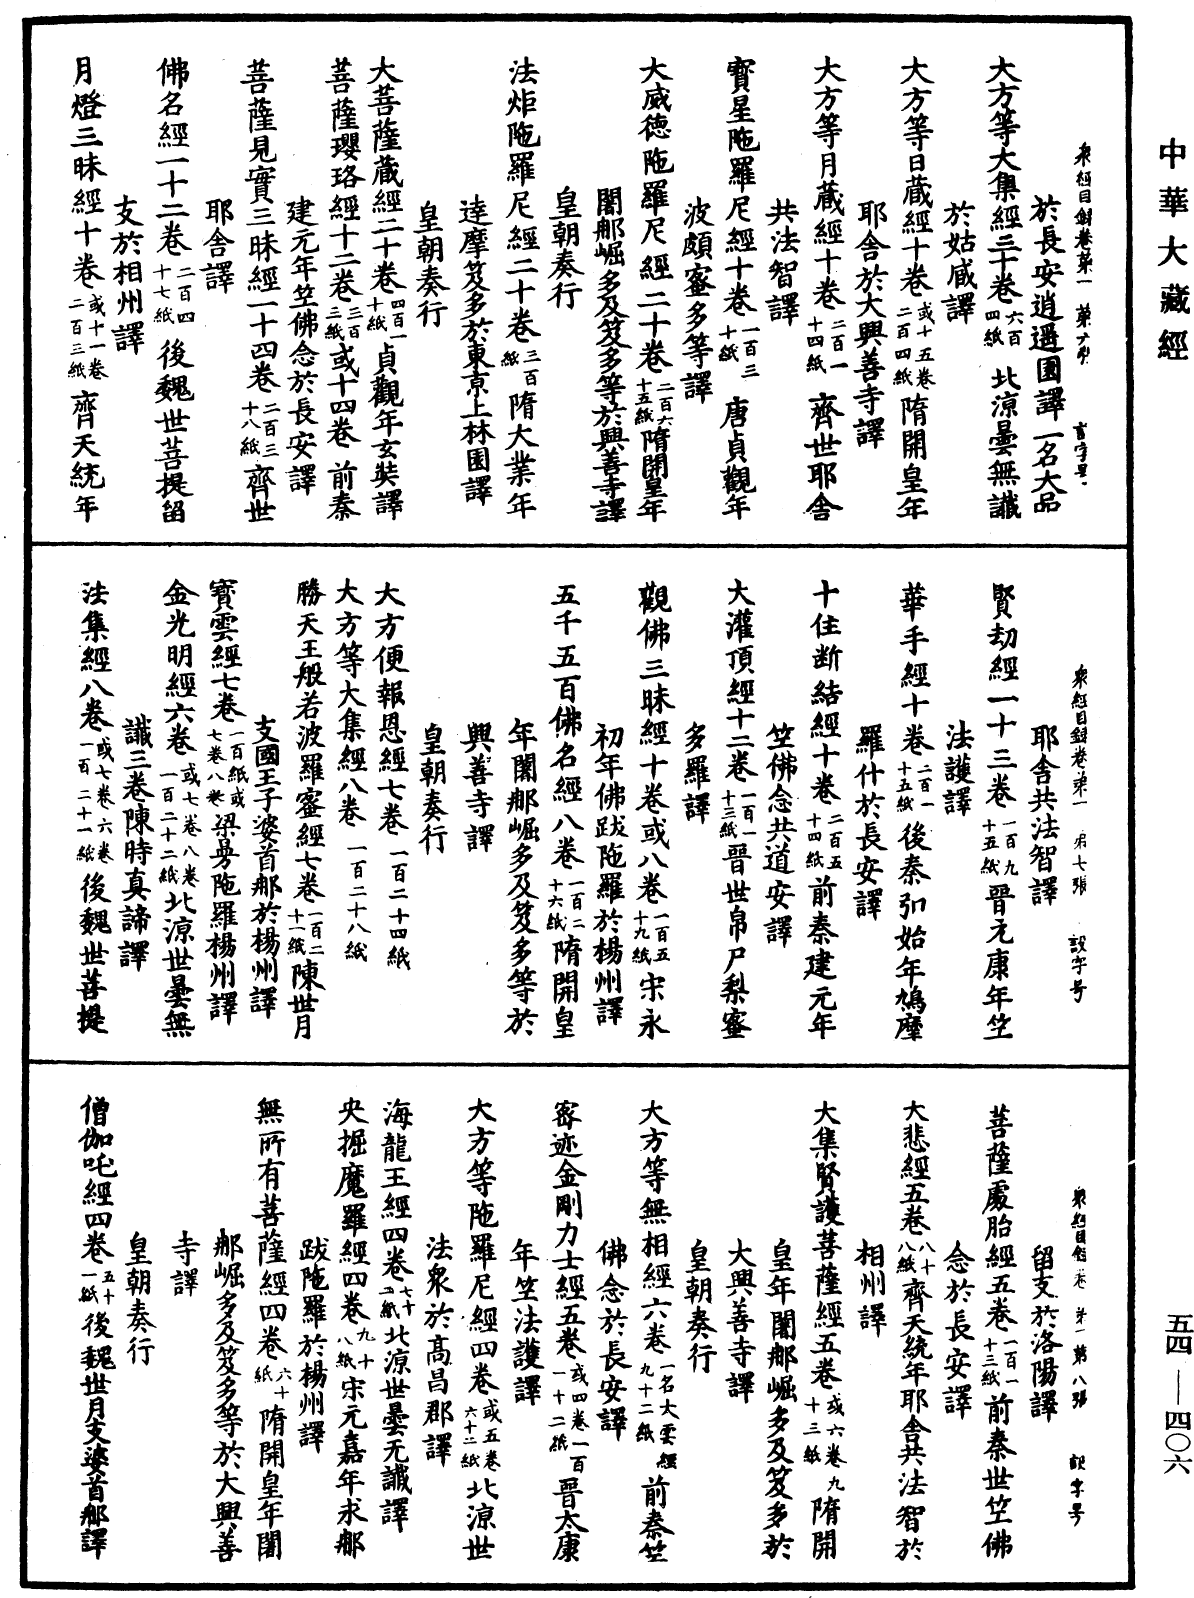 中華大藏經
衆經目録卷第一 第六張
於長安逍遥園譯一名大品
大方等大集經三十卷六百四紙 北涼曇無讖
於姑咸譯
大方等日蔵經十卷或十五卷二百四紙隋開皇年
耶舎於大興善寺譯
大方等月蔵經十卷二百一十四紙 齊世耶舎
共法智譯
寳星陁羅尼經十卷一百三十紙 唐貞觀年
波頗蜜多等譯
大威徳陁羅尼經二十卷二百六十五紙隋開皇年
闍那崛多及笈多等於興善寺譯
皇朝奏行
法炬陁羅尼經二十卷三百紙隋大業年
逹摩笈多於東京上林園譯
皇朝奏行
大菩薩蔵經二十卷四百一十紙貞觀年玄奘譯
菩薩瓔珞經十二卷三百三紙或十四卷 前秦
建元年竺佛念於長安譯
菩薩見實三昧經一十四卷二百三十八紙齊世
耶舎譯
佛名經一十二卷二百四十七紙 後魏世菩提留
支於相州譯
月燈三昧經十卷或十一卷二百三紙齊天統年
衆經目録卷第一 第七張 設字号
耶舎共法智譯
賢劫經一十三卷一百九十五紙晉元康年竺
法護譯
華手經十卷二百一十五紙後秦弘始年鳩摩
羅什於長安譯
十住断結經十卷二百五十四紙前秦建元年
竺佛念共道安譯
大灌頂經十二卷一百一十三紙晉世帛尸梨蜜
多羅譯
觀佛三昧經十卷或八卷一百五十九紙宋永
初年佛跋陁羅於楊州譯
五千五百佛名經八卷一百二十六紙隋開皇
年闍那崛多及笈多等於
興善寺譯
皇朝奏行
大方便報恩經七卷一百二十四紙
大方等大集經八卷 一百二十八紙
勝天王般若波羅蜜經七卷一百二十一紙陳世月
支國王子婆首那於楊州譯
寳雲經七卷一百紙或七卷八卷梁曼陁羅楊州譯
金光明經六卷或七卷八卷一百二十二紙北涼世曇無
讖三卷陳時真諦譯
法集經八卷或七卷六卷一百二十一紙後魏世菩提
衆經目録卷第一 第八張 設字号
留支於洛陽譯
菩薩處胎經五卷一百一十三紙前秦世竺佛
念於長安譯
大悲經五卷八十八紙齊天統年耶舎共法智於
相州譯
大集賢護菩薩經五卷或六卷九十三紙隋開
皇年闍那崛多及笈多於
大興善寺譯
皇朝奏行
大方等無相經六卷一名大雲經九十二紙 前秦竺
佛念於長安譯
密迹金剛力士經五卷或四卷一百一十二紙晉太康
年竺法護譯
大方等陁羅尼經四卷或五卷六十二紙北涼世
法衆於髙昌郡譯
海龍王經四卷七十二紙北涼世曇无讖譯
央掘魔羅經四卷九十八紙宋元嘉年求那
跋陁羅於楊州譯
無所有菩薩經四卷六十紙隋開皇年闍
那崛多及笈多等於大興善
寺譯
皇朝奏行
僧伽吒經四卷五十一紙後魏世月支婆首那譯
五四——四〇六